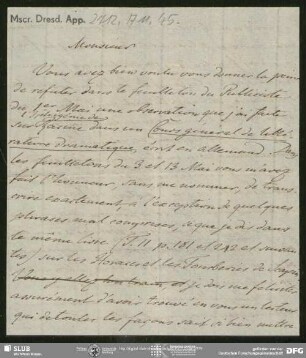 Mscr. Dresd. App. 2712, A 11, 45.
Monsieur
Vous avez bien voulu vous donner la peine
de refuter dans le feuilleton du Publiciste
du 1er Mai une observation que j'ai faite
l'Iphigénie de
sur Racine dans un Cours général de litté-
rature dramatique, écrit en allemand. Dans
les feuilletons du 3 et 13 Mai vous m'avez
fait l'honneur, sans me nommer, de trans-
crire exactement, à l'exception de quelques
phrases mal comprises, ce que je dis dans
le même livre (T. II p. 181 et 242 et suivan-
tes) sur les Horaces et les Fourberies de Scapin
et je dois me féliciter
assurément d'avoir trouvé en vous un lecteur
qui de toutes les façons sait si bien mettre
SLUB
Wir führen Wissen.